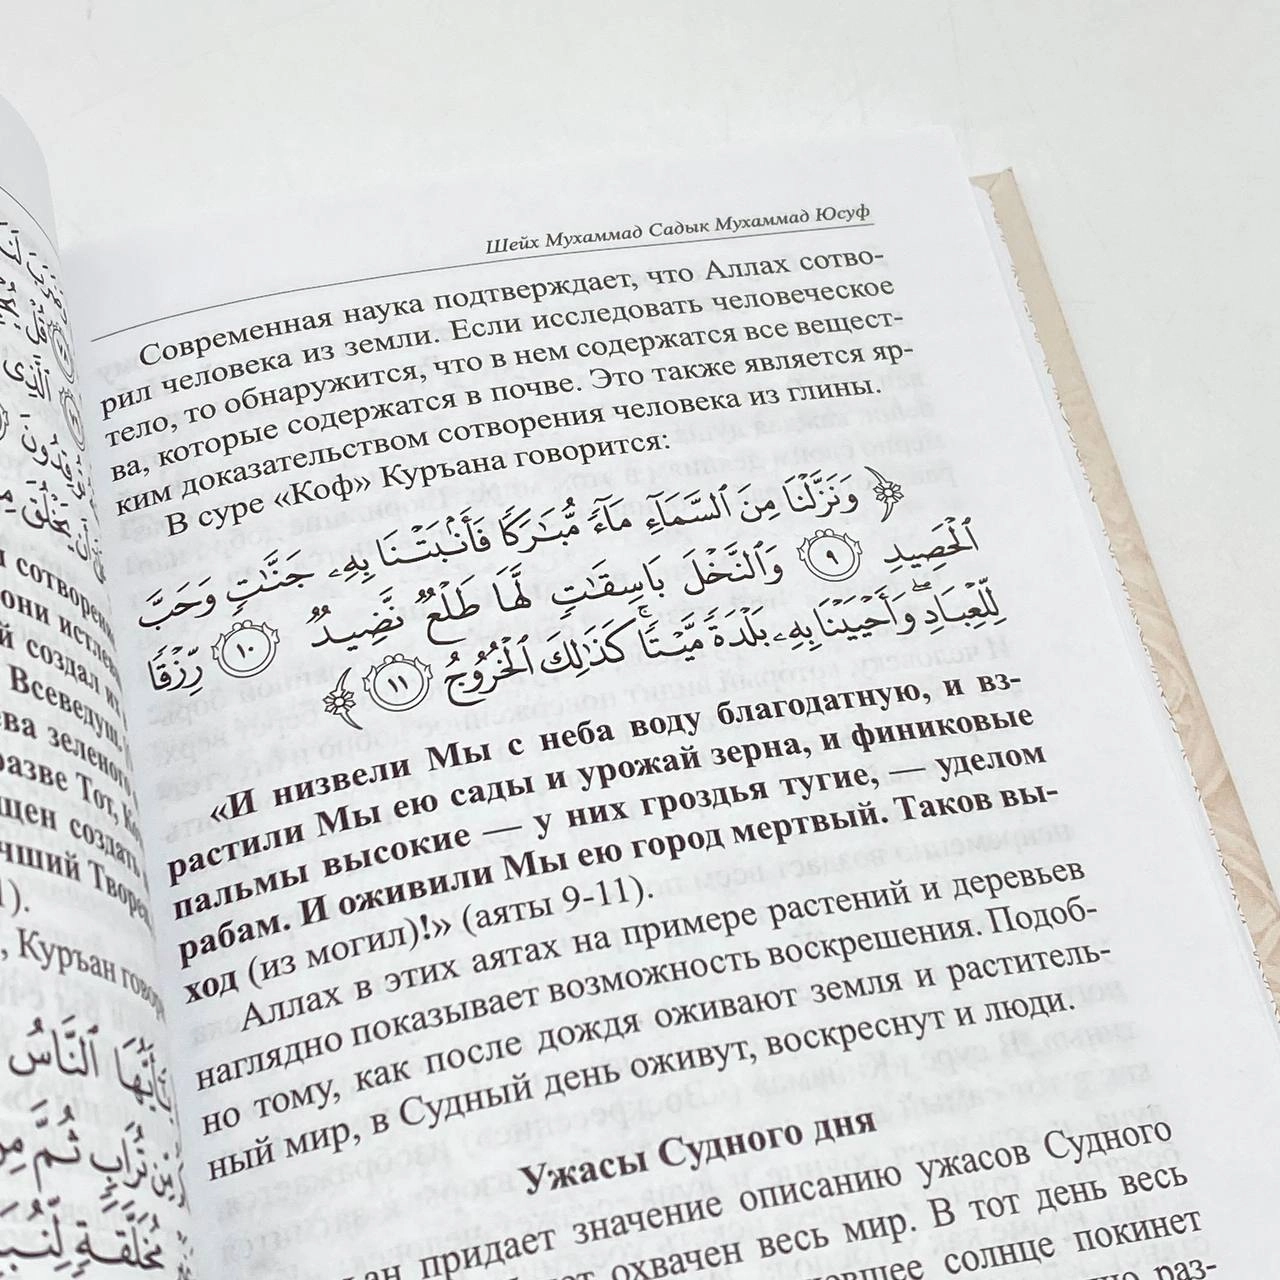 قَ لَنَا
ٱلَّذِي
يَخْلُقَ
сотворены
они истлев
й создал их
Всеведущ.
ева зеленого
разве Тот, Ко
щен создать
чший Творец
1).
, Куръан говор
يَٰٓأَيُّهَا ٱلنَّاسُ
تُرَابٖ ثُمَّ مِن
مُّخَلَّقَةٖ لِّنُبَ
Шейх Мухаммад Садык Мухаммад Юсуф
Современная наука подтверждает, что Аллах сотво-
рил человека из земли. Если исследовать человеческое
тело, то обнаружится, что в нем содержатся все вещест-
ва, которые содержатся в почве. Это также является яр-
ким доказательством сотворения человека из глины.
В суре «Коф» Куръана говорится:
﴿ وَنَزَّلۡنَا مِنَ ٱلسَّمَآءِ مَآءٗ مُّبَٰرَكٗا فَأَنۢبَتۡنَا بِهِۦ جَنَّٰتٖ وَحَبَّ
ٱلۡحَصِيدِ ٩ وَٱلنَّخۡلَ بَاسِقَٰتٖ لَّهَا طَلۡعٞ نَّضِيدٞ ١٠ رِّزۡقٗا
لِّلۡعِبَادِۖ وَأَحۡيَيۡنَا بِهِۦ بَلۡدَةٗ مَّيۡتٗاۚ كَذَٰلِكَ ٱلۡخُرُوجُ ١١ ﴾
«И низвели Мы с неба воду благодатную, и вз-
растили Мы ею сады и урожай зерна, и финиковые
пальмы высокие — у них гроздья тугие, — уделом
рабам. И оживили Мы ею город мертвый. Таков вы-
ход (из могил)!» (аяты 9-11).
Аллах в этих аятах на примере растений и деревьев
наглядно показывает возможность воскрешения. Подоб-
но тому, как после дождя оживают земля и раститель-
ный мир, в Судный день оживут, воскреснут и люди.
Ужасы Судного дня
ан придает значение описанию ужасов Судного
ет охвачен весь мир. В тот день весь
солнце покинет
раз-